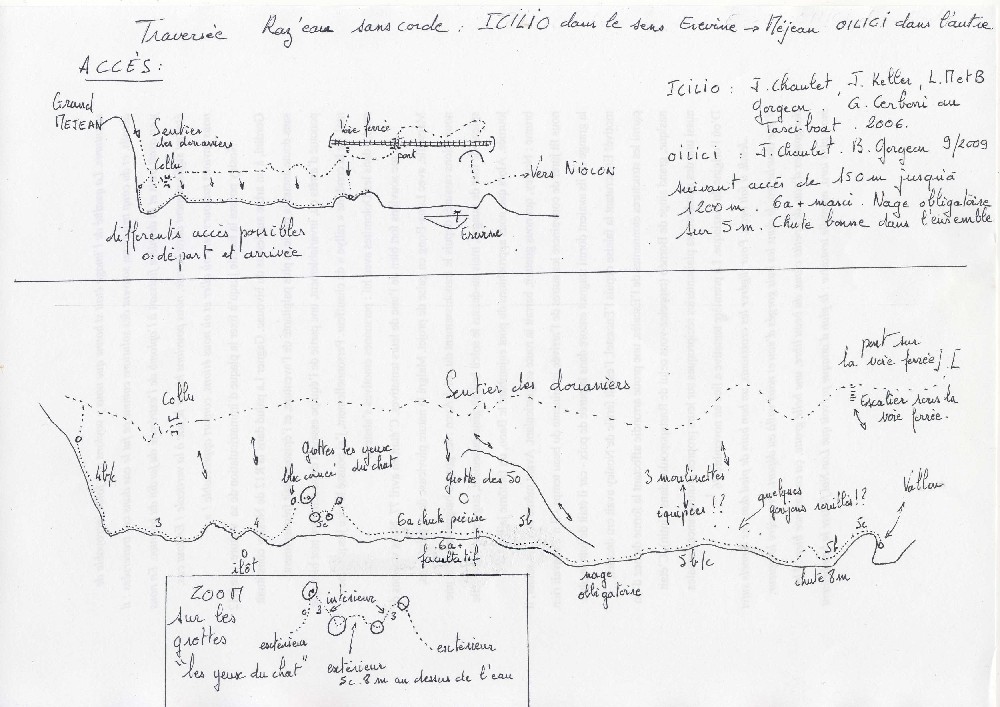 Traversée Raz'eau sans corde : ICILIO dans le sens Erevine → Méjean OILICI dans l'autre
ACCÈS :
Grand
MEJEAN
Sentier
des douaniers
Collu
Voie ferrée
pont
Vers NIOLON
Erevine
différents accès possibles
o: départ et arrivée
Icilio : J. Chaulet, J. Keller, L. M et B
Gorgeon. G. Cerboni au
Tasciboat. 2006.
oilici : J. Chaulet. B. Gorgeon 9/2009
suivant accès de 150 m jusqu'à
1200 m. 6a+ maxi. Nage obligatoire
sur 5 m. Chute bonne dans l'ensemble
pont sur
la voie ferrée
Escalier sous la
voie ferrée.
Sentier des douaniers
Collu
4b/c
3
4
îlôt
grottes les yeux
du chat
bloc coincé
5c
6a chute précise
6a+
facultatif
grotte des 50
5b
nage
obligatoire
3 moulinettes
équipées !?
quelques
goujons rouillés !?
5b/c
chute 8m
5b
5c
Vallon
ZOOM
sur les
grottes
"les yeux du chat"
3
intérieur
3
extérieur
extérieur
extérieur
5c. 8 m au dessus de l'eau